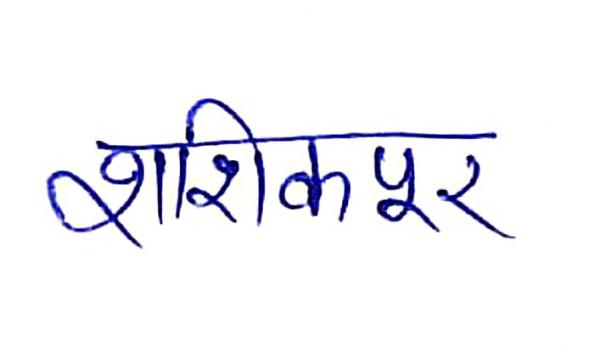 शशिकपूर